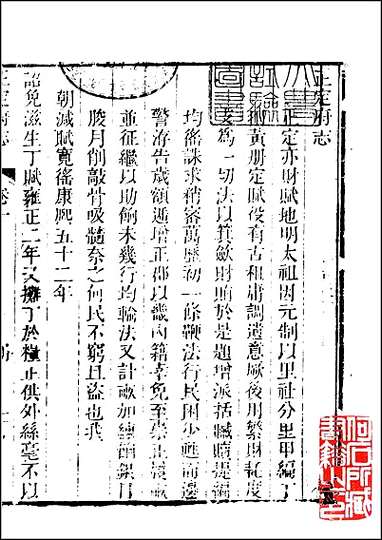 正定府志
正定亦財賦地明太祖因元制以里社分里甲編丁
黃册定賦役有古租庸調遺意厥後用繁財耗度
支為一切法以箕歛財賄於是題增派括贓贖提編
均徭誅求稍密萬歷初一條鞭法行民困少甦而邊
警洊告歲額遞增正郡以畿內籍幸免至崇正
並征繼以助餉未幾行均輸法又計畝加練餉銀日
朘月削敲骨吸髓奈之何民不窮且盜也我
朝減賦寬徭康熙五十二年
詔免滋生丁賦雍正二年又攤丁於糧正供外絲毫不以
正定府志
卷